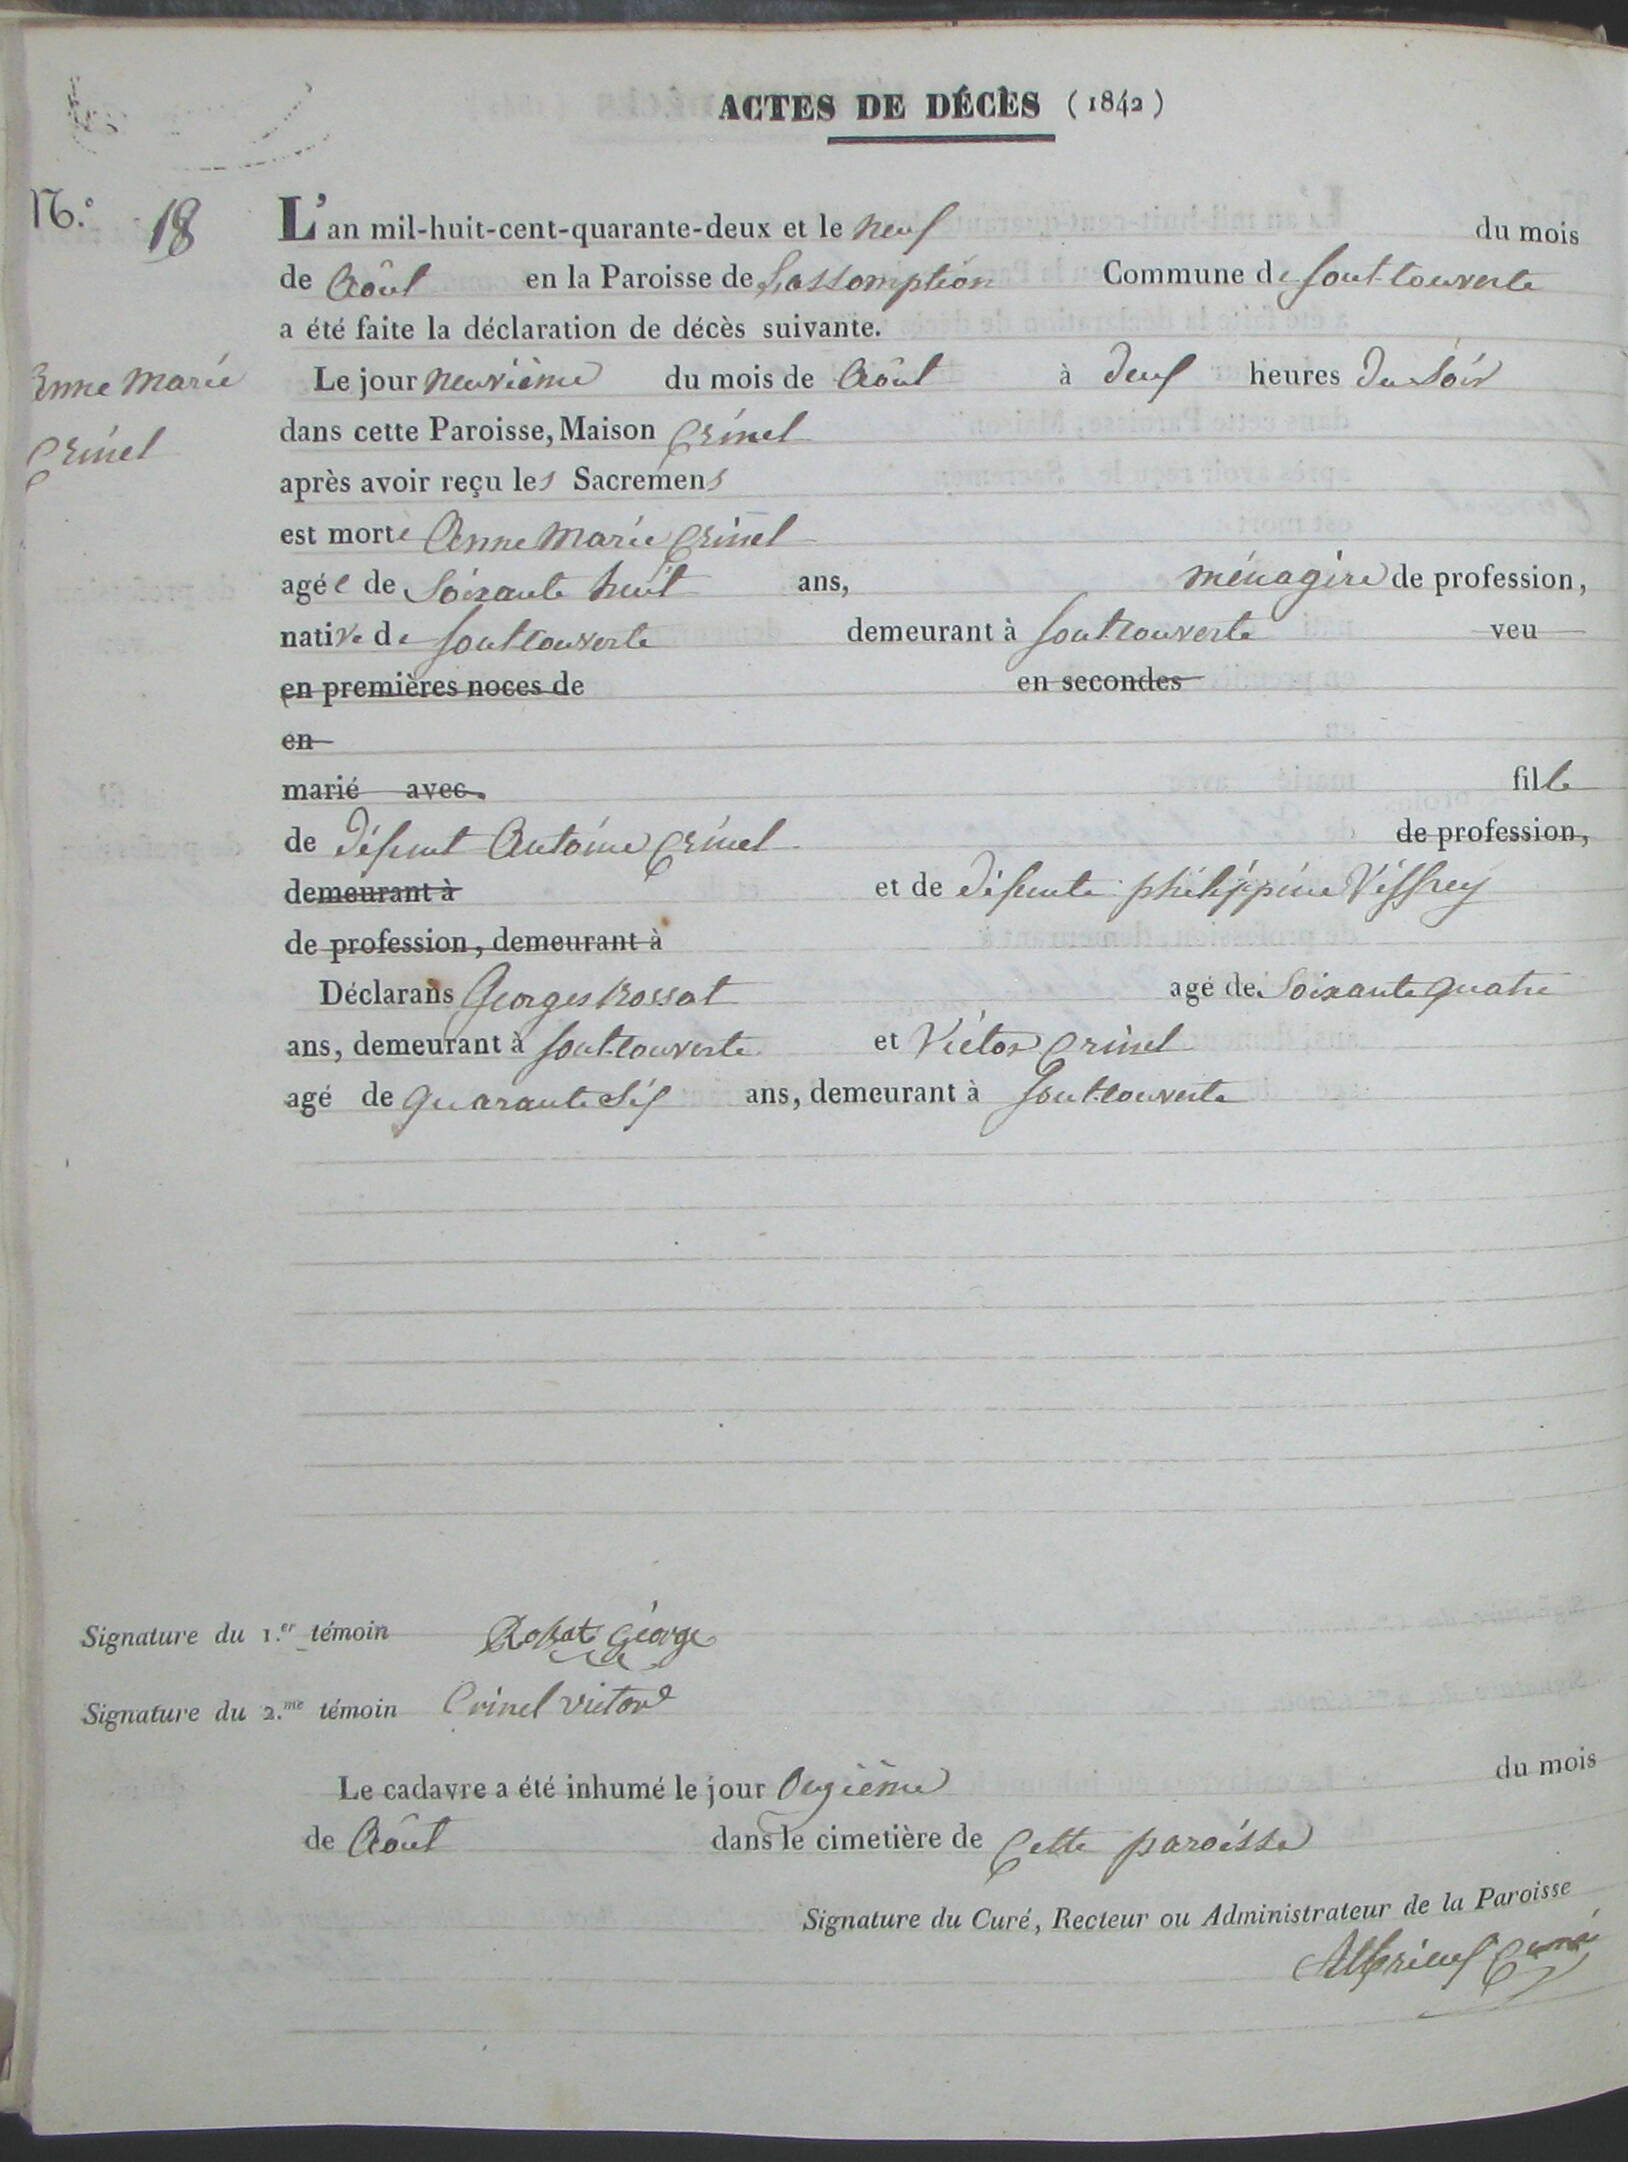 ACTES DE DÉCÈS (1842)
N.° 18
L'an mil-huit-cent-quarante-deux et le neuf du mois
de Aôut en la Paroisse de Lassomption Commune de fontcouverte
a été faite la déclaration de décès suivante.
Anne Marie
Crinel
Le jour neuvième du mois de Aôut à deux heures du Soir
dans cette Paroisse, Maison Crinel
après avoir reçu les Sacremens
est morte Anne Marie Crinel
agée de Soixante huit ans, ménagère de profession,
native de fontcouverte demeurant à fontcouverte veu
en premières noces de en secondes
en
marié avec fille
de défunt Antoine Crinel de profession,
demeurant à et de défunte philippine Viffrey
de profession, demeurant à
Déclarans Georges Rossat agé de Soixante quatre
ans, demeurant à fontcouverte et Victor Crinel
agé de quarante Six ans, demeurant à fontcouverte
Signature du 1.er témoin Rossat George
Signature du 2.me témoin Crinel victor
Le cadavre a été inhumé le jour Onzième du mois
de Aôut dans le cimetière de Cette paroisse
Signature du Curé, Recteur ou Administrateur de la Paroisse
Curé